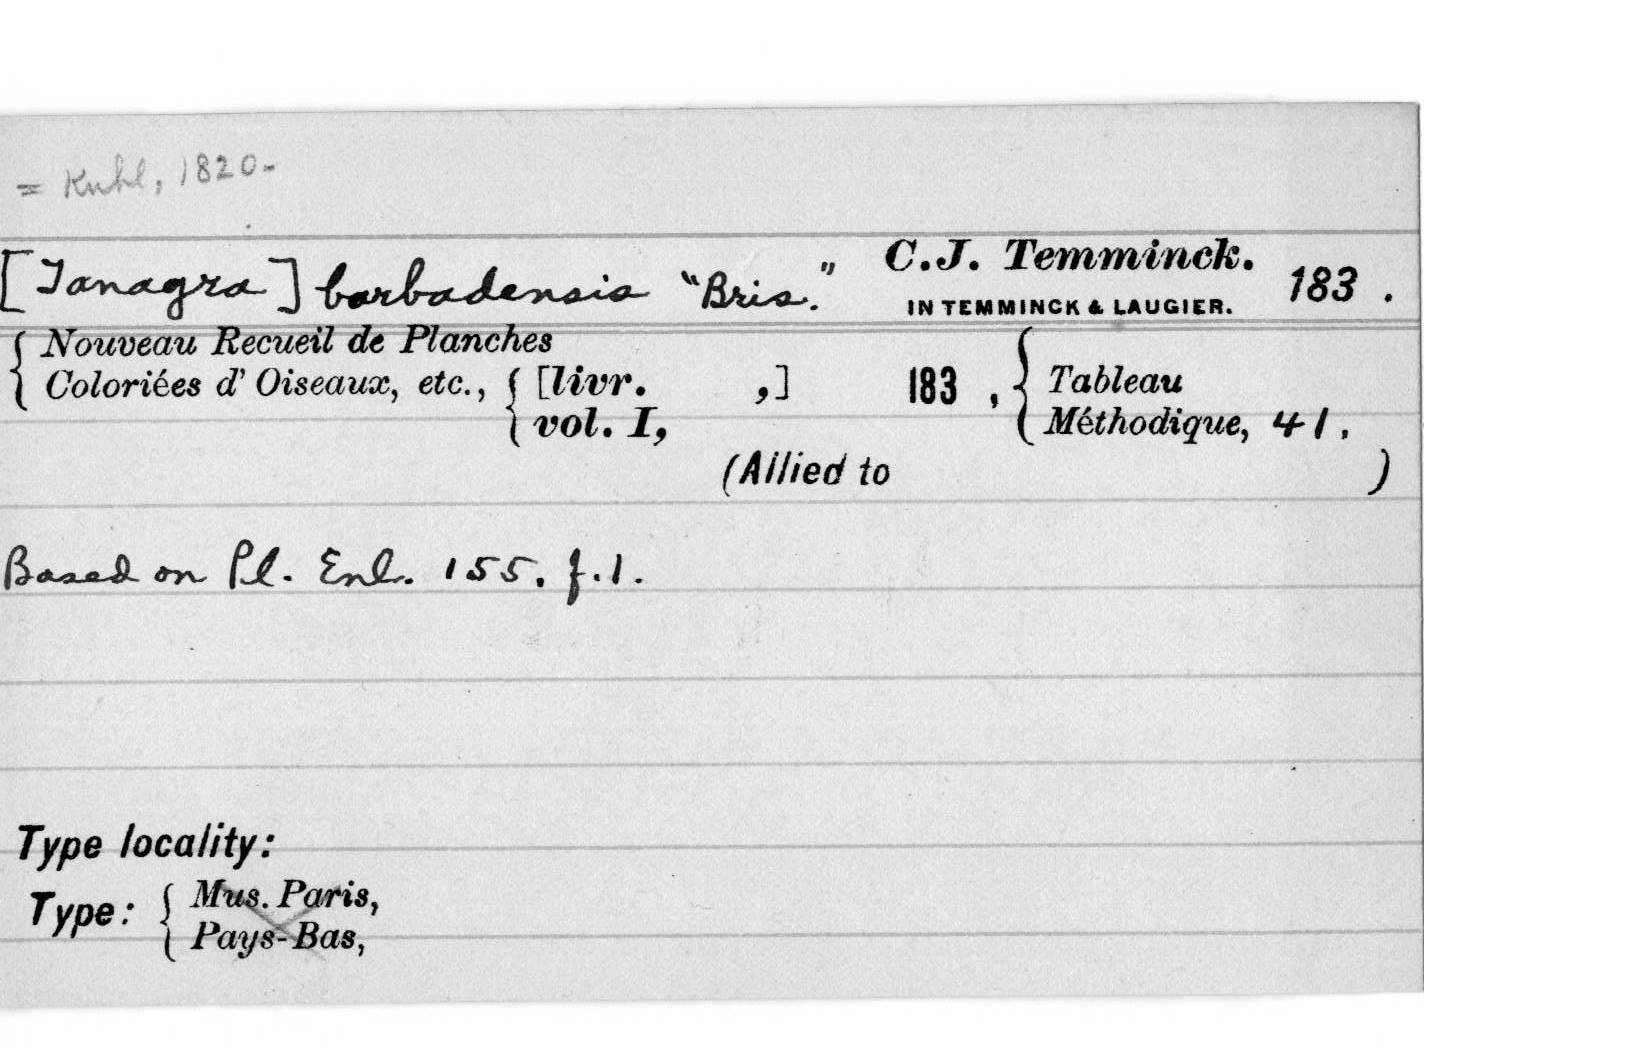 = Kuhl, 1820-
[Tanagra] barbadensis "Bris." C.J. Temminck. 183.
IN TEMMINCK & LAUGIER.
Nouveau Recueil de Planches
Coloriées d' Oiseaux, etc., [livr. ,] 183, Tableau
vol. I, Méthodique, 41.
(Allied to )
Based on Pl. Enl. 155. f.1.
Type locality:
Type: Mus. Paris,
Pays-Bas,